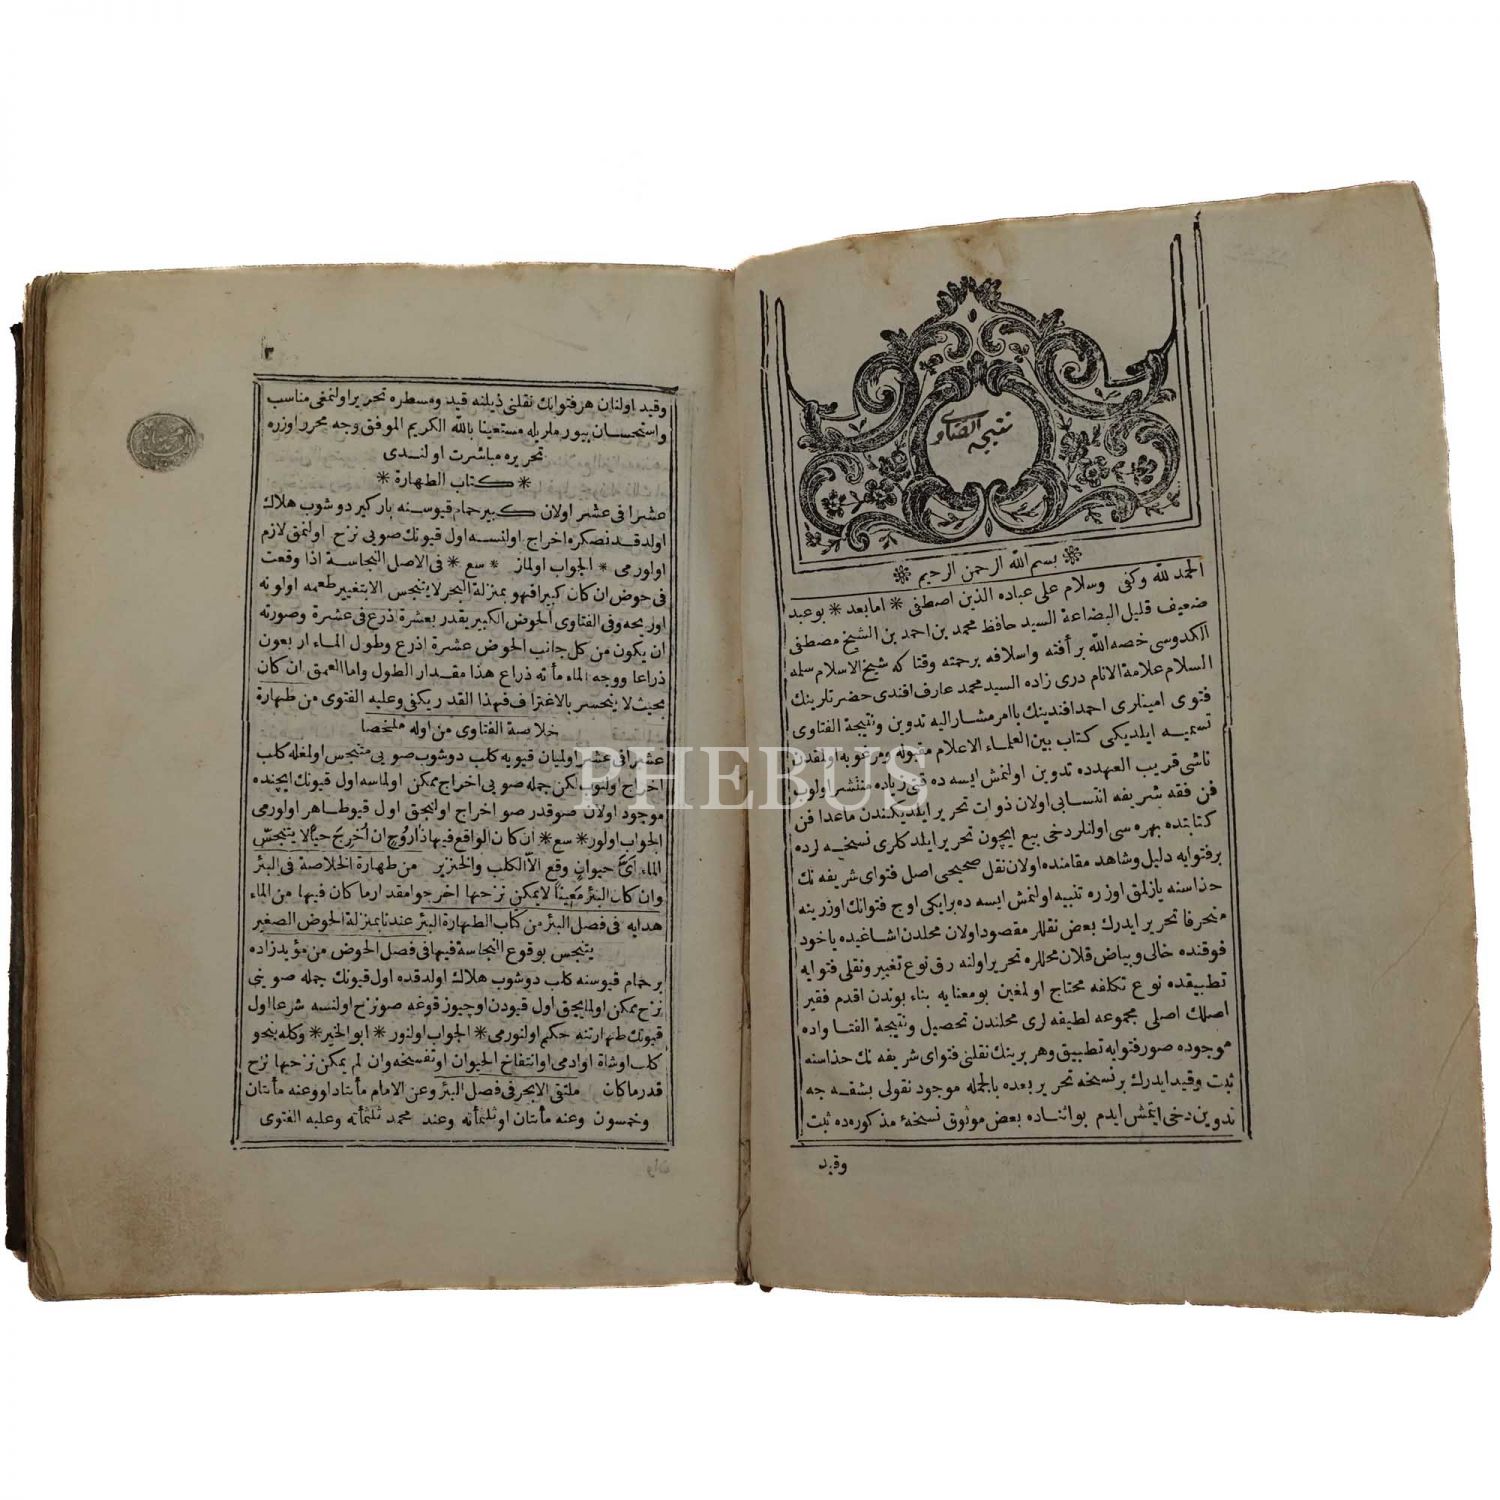 نتيجة الفتاوى
❊ بسم الله الرحمن الرحيم ❊
الحمد لله وكفى وسلام على عباده الذين اصطفى * اما بعد * بو عبد
ضعيف قليل البضاعة السيد حافظ محمد بن احمد بن الشيخ مصطفى
الكدوسى خصه الله برأفته واسلافه برحمته وقتا كه شيخ الاسلام سلمه
السلام علامة الانام درى زاده السيد محمد عارف افندى حضرتلرينك
فتوى امينلرى احمد افندينك باامر مشار اليه تدوين ونتيجة الفتاوى
تسميه ايلديكى كتاب بين العلماء الاعلام مقبوله ومرغوبه اولمقدن
ناشى قريب العهدده تدوين اولنمش ايسه ده قتى زياده منتشر اولوب
فن فقه شريفه انتسابى اولان ذوات تحرير ايلديكندن ماعدا فن
كتابتده بهره سى اولنلر دخى بيع ايچون تحرير ايلدكلرى نسخه لرده
بر فتوايه دليل وشاهد مقامنده اولان نقل صحيحى اصل فتواى شريفه نك
حذاسنه يازلمق اوزره تنبيه اولنمش ايسه ده بر ايكى اوچ فتوانك اوزرينه
منحرفا تحرير ايدرك بعض نقللر مقصود اولان محلدن اشاغيده ياخود
فوقنده خالى وبياض قلان محللره تحرير اولنه رق نوع تغيير ونقلى فتوايه
تطبيقده نوع تكلفه محتاج اولمغين بو معنايه بناء بوندن اقدم فقير
اصلك اصلى مجموعه لطيفه لرى محلندن تحصيل ونتيجة الفتاواده
موجوده صور فتوايه تطبيق وهر برينك نقلنى فتواى شريفه نك حذاسنه
ثبت وقيد ايدرك بر نسخه تحرير بعده بالجمله موجود نقولى بشقه جه
تدوين دخى ايتمش ايدم بو اثناده بعض موثوق نسخهٔ مذكوره ده ثبت
وقيد
٣
وقيد اولنان هر فتوانك نقلنى ذيلنه قيد ومسطره تحرير اولنمغى مناسب
واستحسان بيورملريله مستعينا بالله الكريم الموفق وجه محرر اوزره
تحريره مباشرت اولندى
* كتاب الطهارة *
عشرا فى عشر اولان كبير حمام قيوسنه باركير دوشوب هلاك
اولدقدنصكره اخراج اولنسه اول قيونك صويى نزح اولنمق لازم
اولورمى * الجواب اولماز * سع * فى الاصل النجاسة اذا وقعت
فى حوض ان كان كبيرا فهو بمنزلة البحر لا يتنجس الا بتغيير طعمه او لونه
او ريحه وفى الفتاوى الحوض الكبير يقدر بعشرة اذرع فى عشرة وصورته
ان يكون من كل جانب الحوض عشرة اذرع وطول الماء اربعون
ذراعا ووجه الماء مأته ذراع هذا مقدار الطول واما العمق ان كان
بحيث لا ينحسر بالاغتراف فهذا القدر يكفى وعليه الفتوى من طهارة
خلاصة الفتاوى من اوله ملخصا
عشرا فى عشر اولميان قيويه كلب دوشوب صويى متنجس اولمغله كلب
اخراج اولنوب لكن جمله صويى اخراج ممكن اولماسه اول قيونك ايچنده
موجود اولان صو قدر صو اخراج اولنيجق اول قيو طاهر اولورمى
الجواب اولور * سع * ان كان الواقع فيها ذا روح ان اخرج حيا لا يتنجس
الماء اى حيوان وقع الا الكلب والخنزير من طهارة الخلاصة فى البئر
وان كان البئر معينا لا يمكن نزحها اخرجوا مقدار ما كان فيها من الماء
هدايه فى فصل البئر من كتاب الطهارة البئر عندنا بمنزلة الحوض الصغير
يتنجس بوقوع النجاسة فيها فى فصل الحوض من مؤيدزاده
بر حمام قيوسنه كلب دوشوب هلاك اولدقده اول قيونك جمله صوينى
نزح ممكن اولمايجق اول قيودن اوچيوز قوغه صو نزح اولنسه شرعا اول
قيونك طهارتنه حكم اولنورمى * الجواب اولنور * ابو الخير * وكله بنحو
كلب او شاة او ادمى او انتفاخ الحيوان او تفسخه وان لم يمكن نزحها نزح
قدر ما كان ملتقى الابحر فى فصل البئر وعن الامام مأيتاد او وعنه مأيتان
وخمسون وعنه مأيتان او ثلثمأته وعند محمد ثلثمأته وعليه الفتوى
وان
PHEBUS